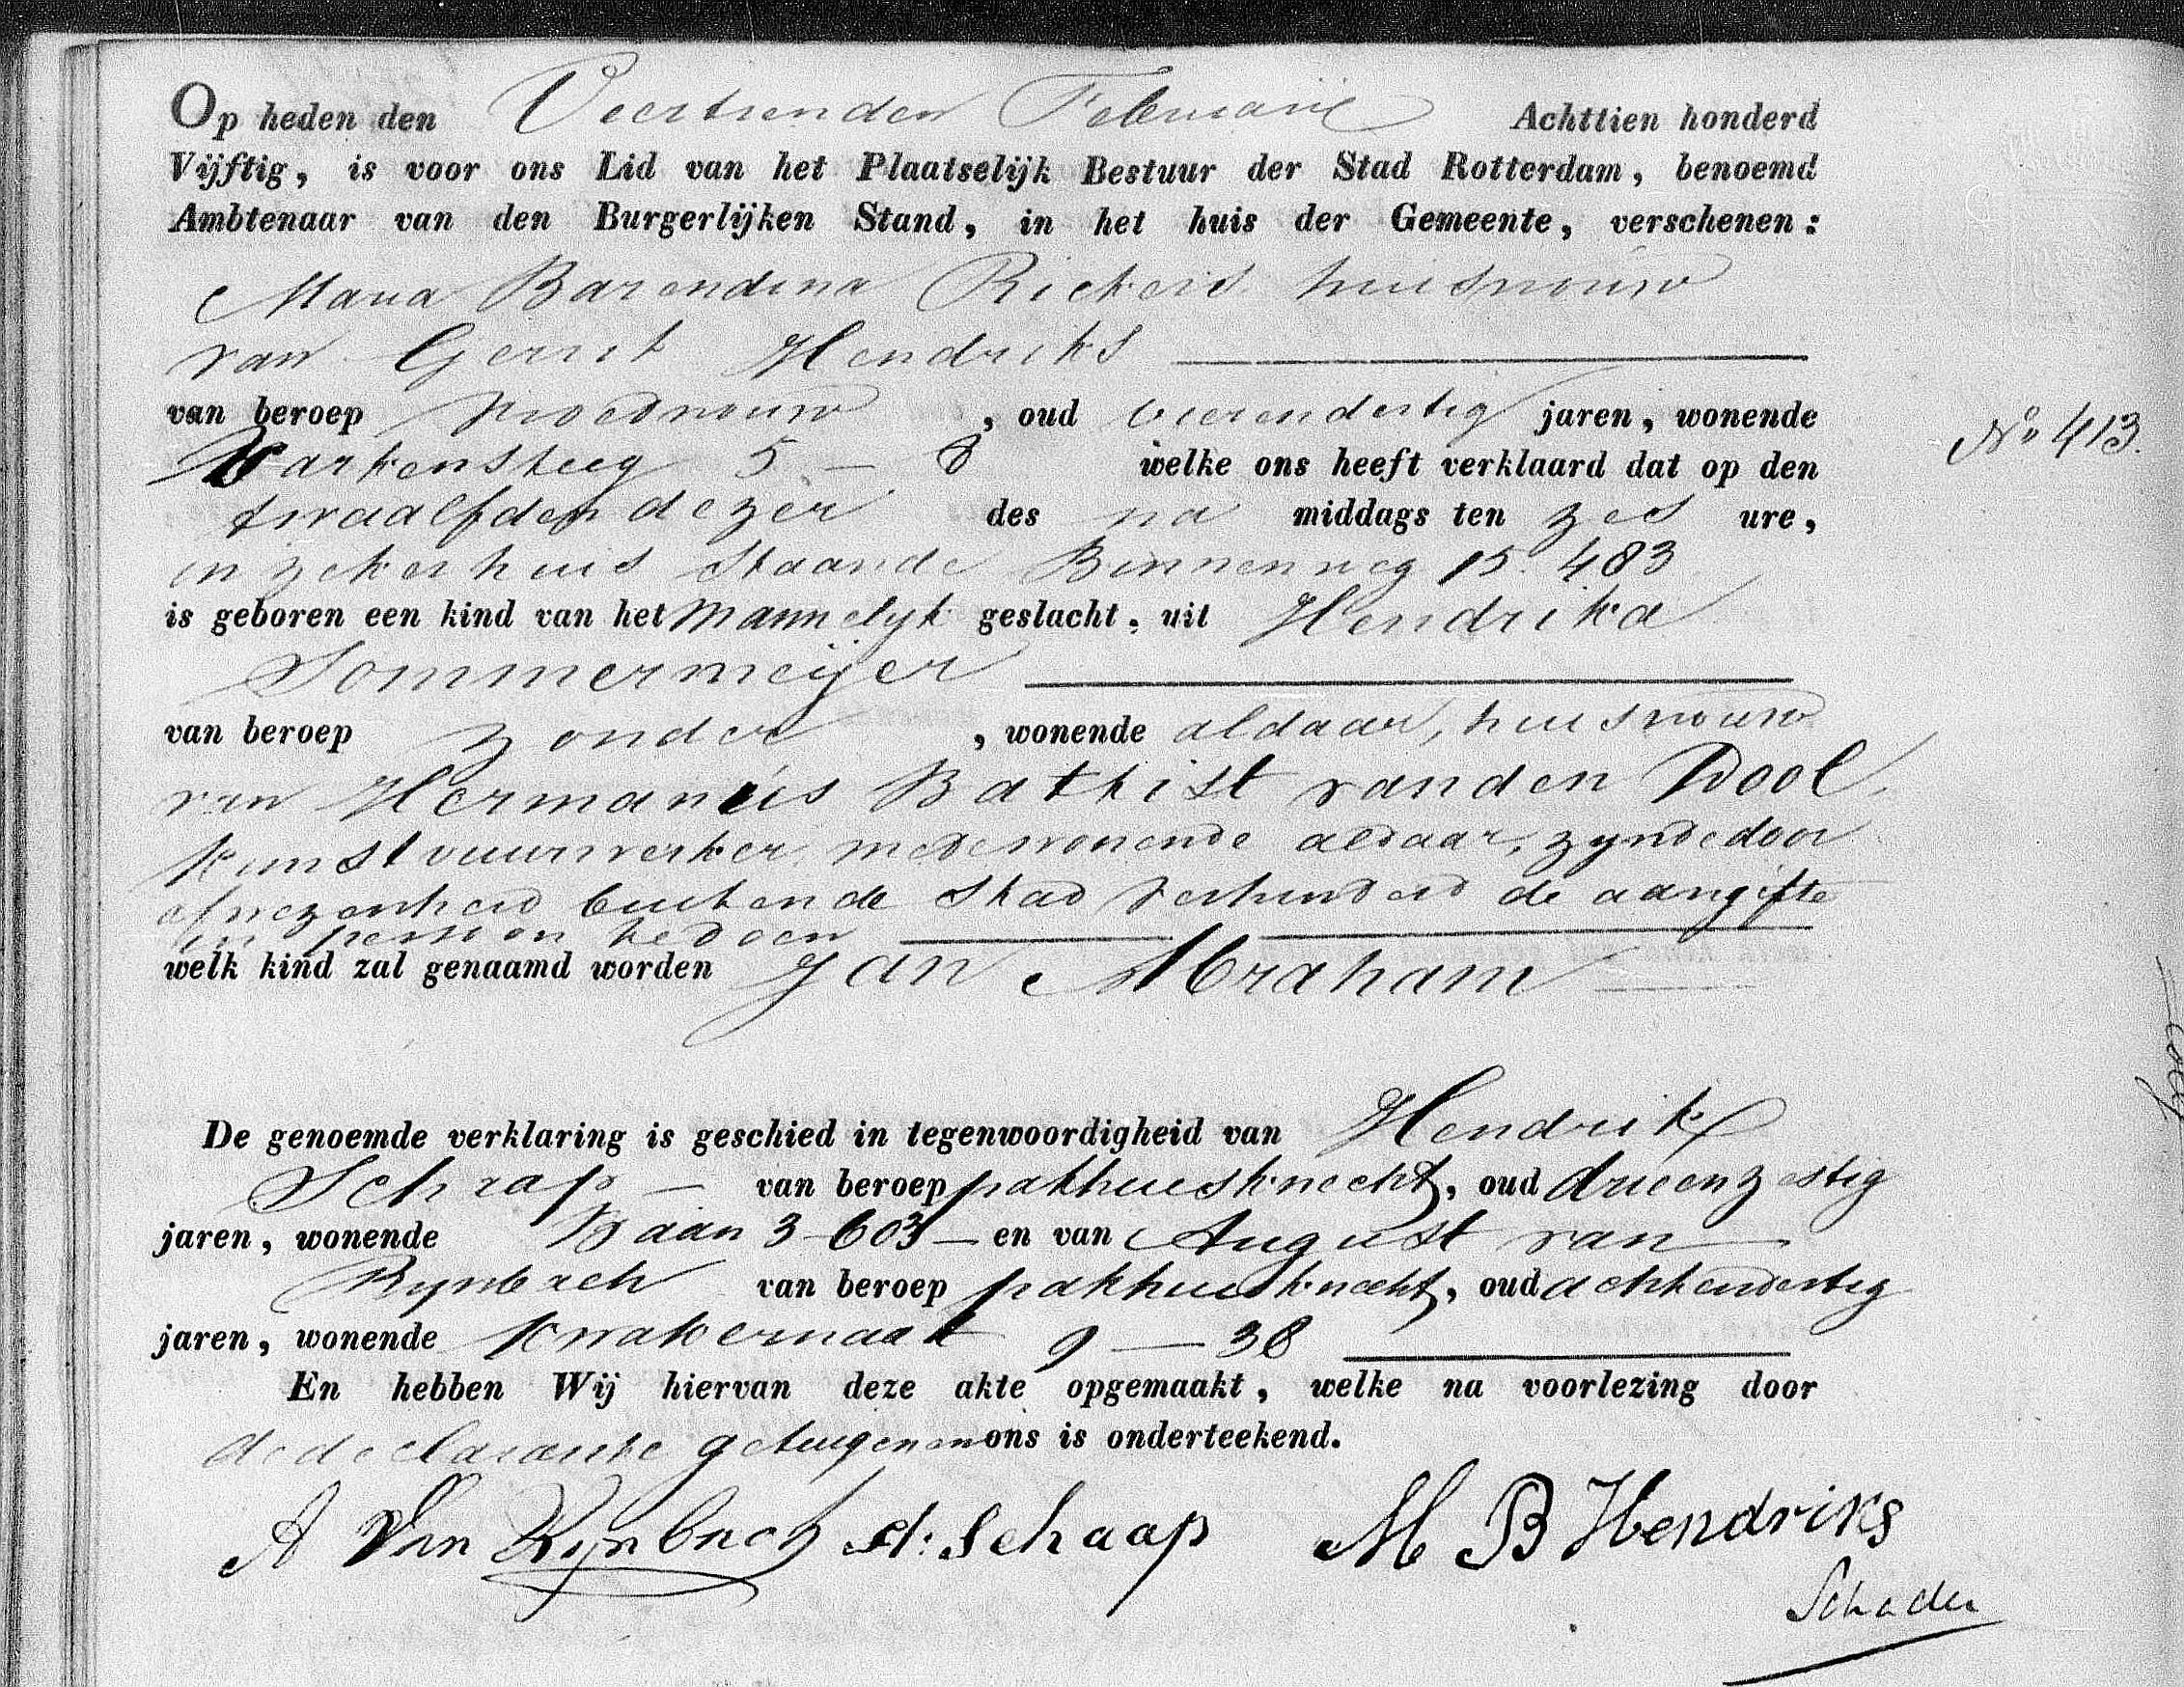 Op heden den Veertienden Februarij Achttien honderd
Vijftig, is voor ons Lid van het Plaatselijk Bestuur der Stad Rotterdam, benoemd
Ambtenaar van den Burgerlijken Stand, in het huis der Gemeente, verschenen:
Maria Barendina Rickers huisvrouw
van Gerrit Hendriks
van beroep vroedvrouw, oud vierendertig jaren, wonende
Varkensteeg 5 – 8 welke ons heeft verklaard dat op den
twaalfden dezer des na middags ten zes ure,
in zeker huis staande Binnenweg 15. 483
is geboren een kind van het mannelyk geslacht, uit Hendrika
Sommermeijer
van beroep zonder, wonende aldaar, huisvrouw
van Hermanus Bathist van den Dool,
kunstvuurwerker, medewonende aldaar, zynde door
afwezenheid buiten de stad verhinderd de aangifte
in persoon te doen
welk kind zal genaamd worden Jan Abraham
De genoemde verklaring is geschied in tegenwoordigheid van Hendrik
Schaap – van beroep pakhuisknecht, oud drieenzestig
jaren, wonende Baan 3–603 – en van August van
Rynbach van beroep pakhuisknecht, oud achtendertig
jaren, wonende Kwakernaak 9 — 38
En hebben Wij hiervan deze akte opgemaakt, welke na voorlezing door
de declarante getuigen en ons is onderteekend.
A Van Rynbach H: Schaap M B Hendriks
Schadee
No 413.